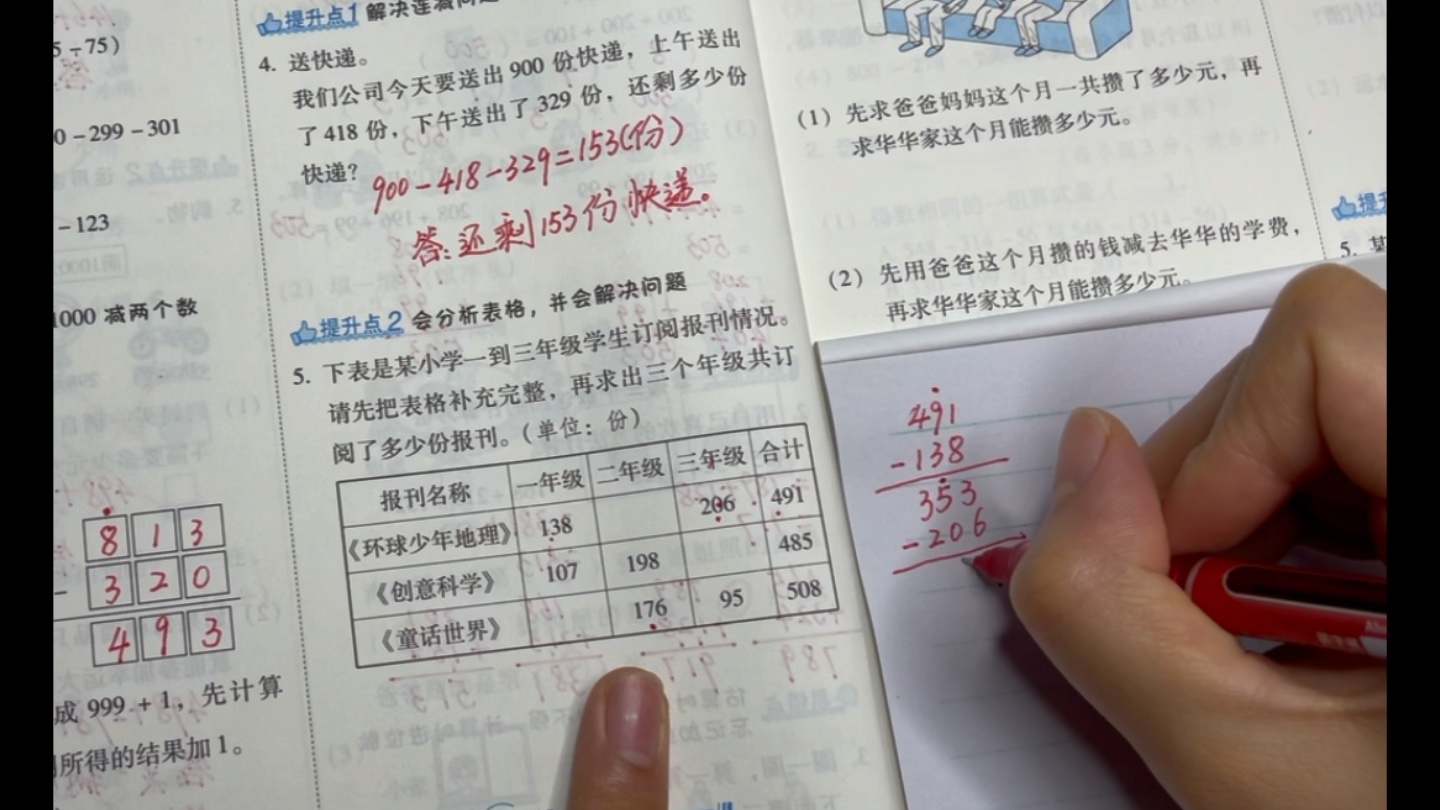 提升点1 解决连减问题
4. 送快递。
我们公司今天要送出 900 份快递，上午送出
了 418 份，下午送出了 329 份，还剩多少份
快递？
900-418-329=153(份)
答:还剩153份快递。
提升点2 会分析表格，并会解决问题
5. 下表是某小学一到三年级学生订阅报刊情况。
请先把表格补充完整，再求出三个年级共订
阅了多少份报刊。（单位：份）
报刊名称 一年级 二年级 三年级 合计
《环球少年地理》 138 206 491
《创意科学》 107 198 485
《童话世界》 176 95 508
5-75)
0-299-301
-123
1000 减两个数
8 1 3
- 3 2 0
4 9 3
成 999 + 1，先计算
所得的结果加 1。
(1) 先求爸爸妈妈这个月一共攒了多少元，再
求华华家这个月能攒多少元。
(2) 先用爸爸这个月攒的钱减去华华的学费，
再求华华家这个月能攒多少元。
提升
5. 某
491
-138
353
-206